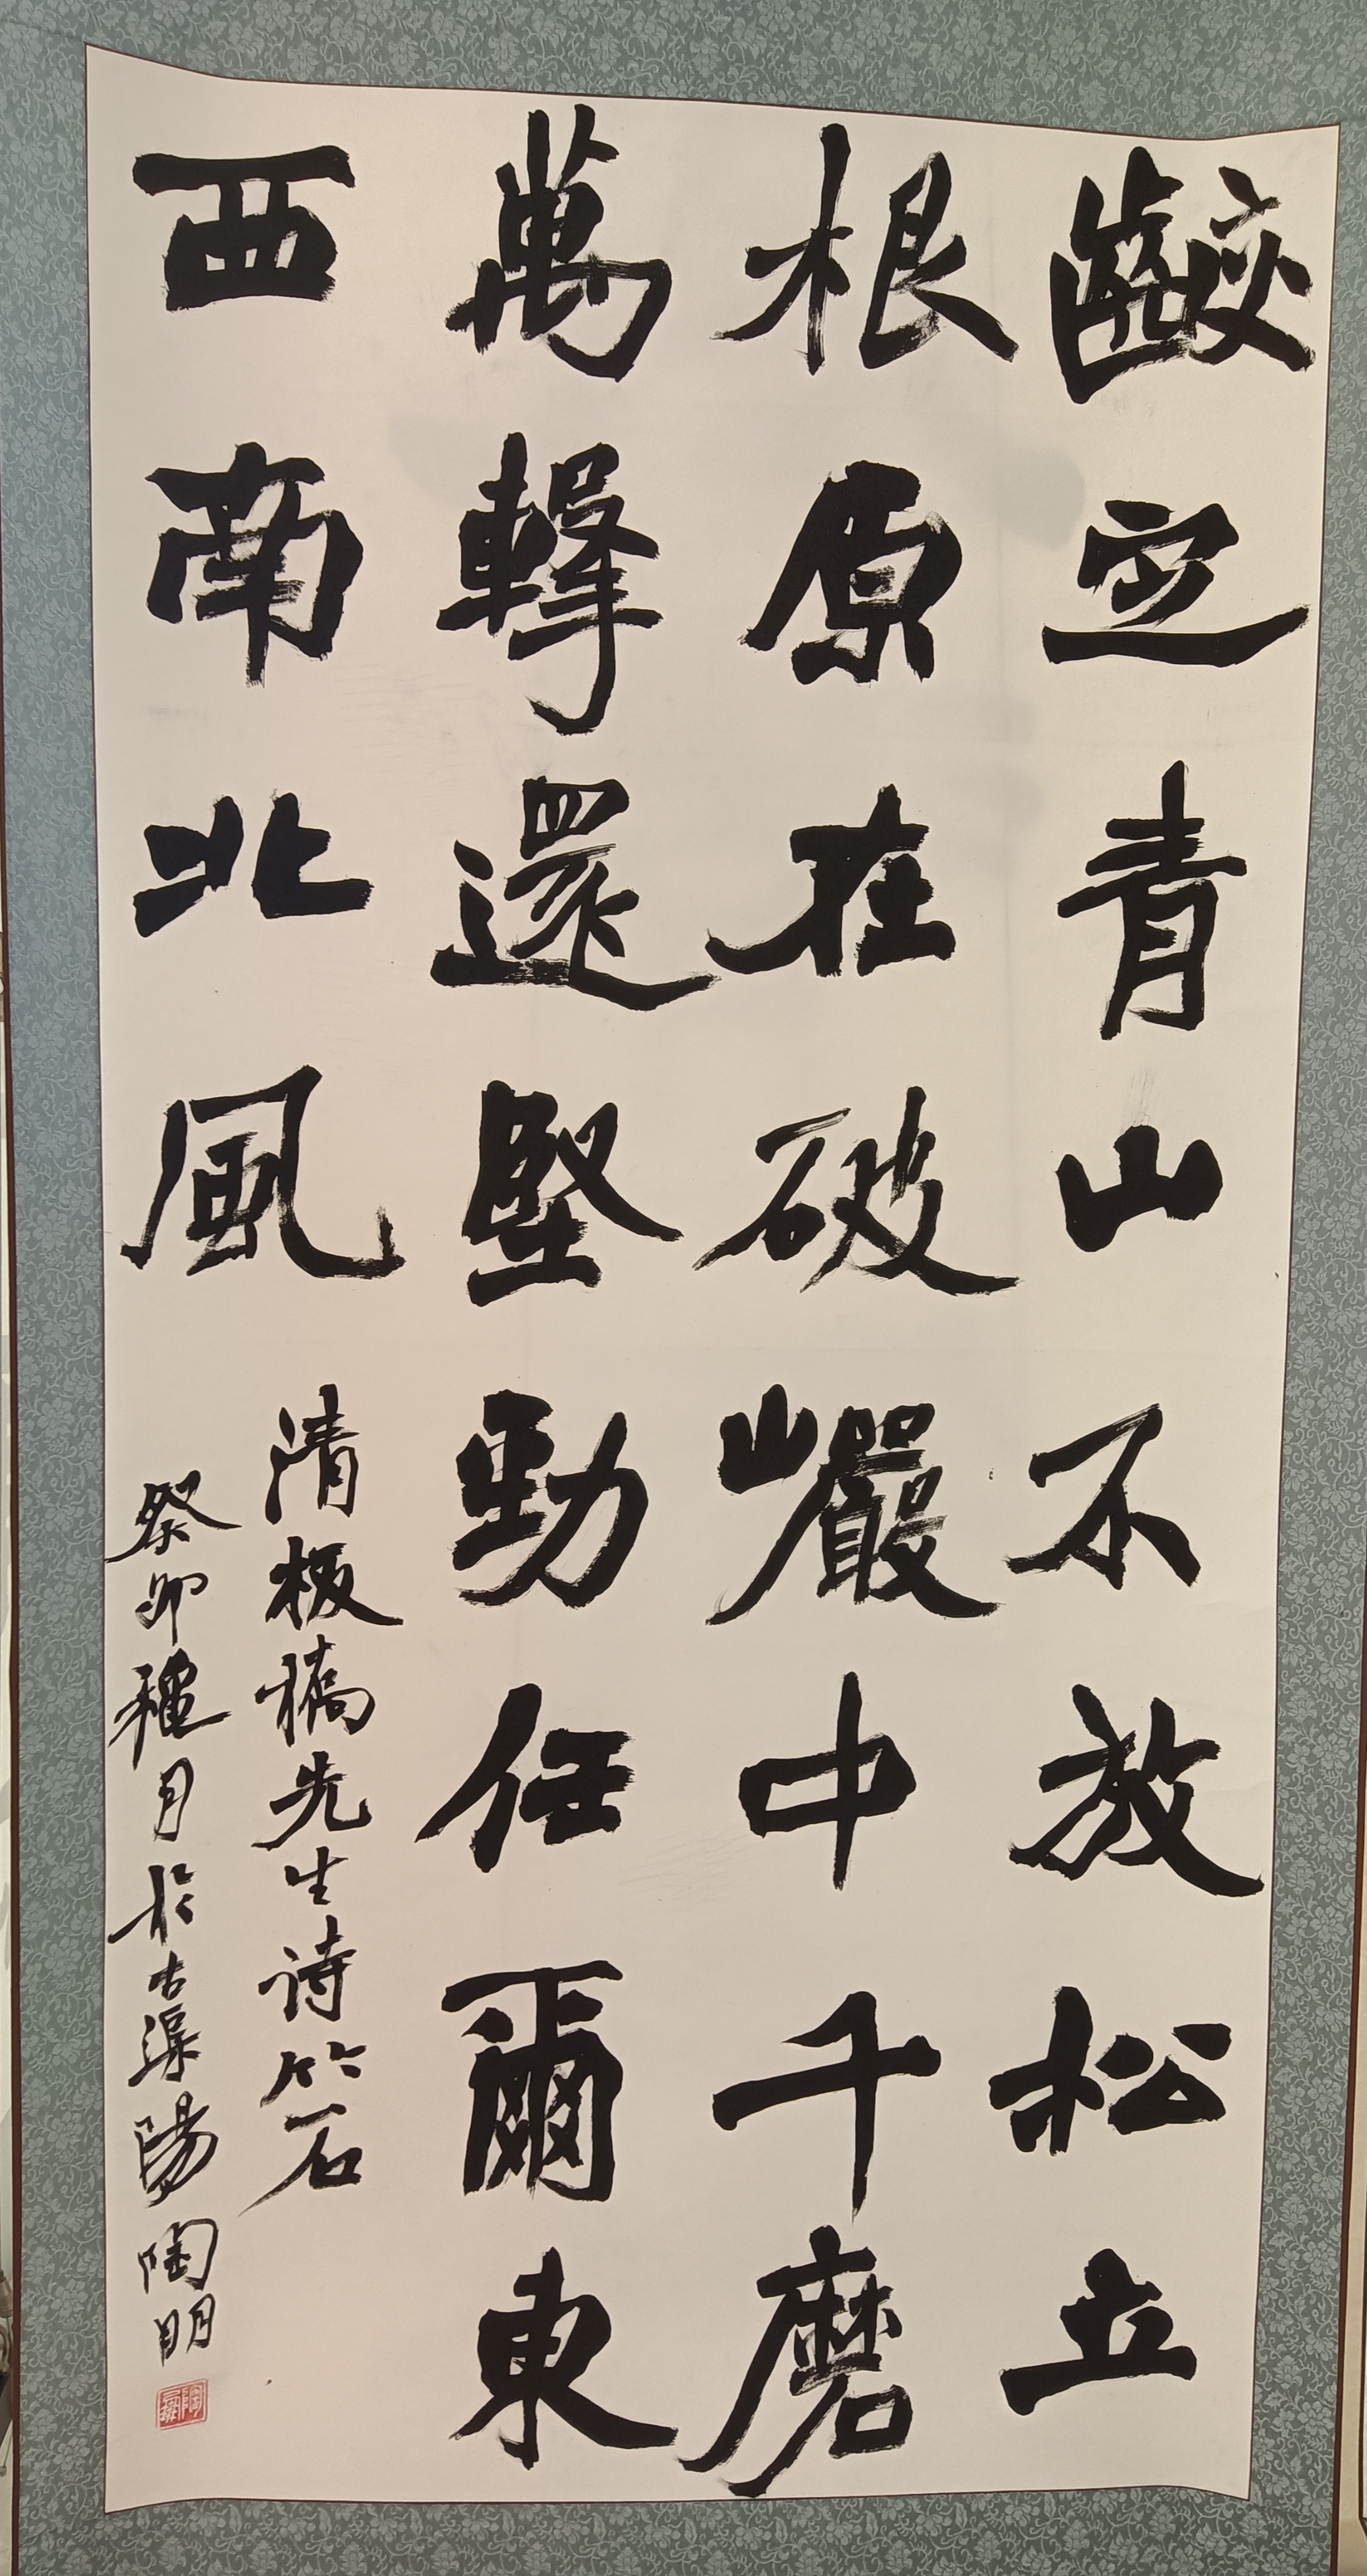 齩定青山不放松立
根原在破巖中千磨
萬擊還堅勁任爾東
西南北風
清板橋先生诗竹石
癸卯穐月於古渠陽陶明